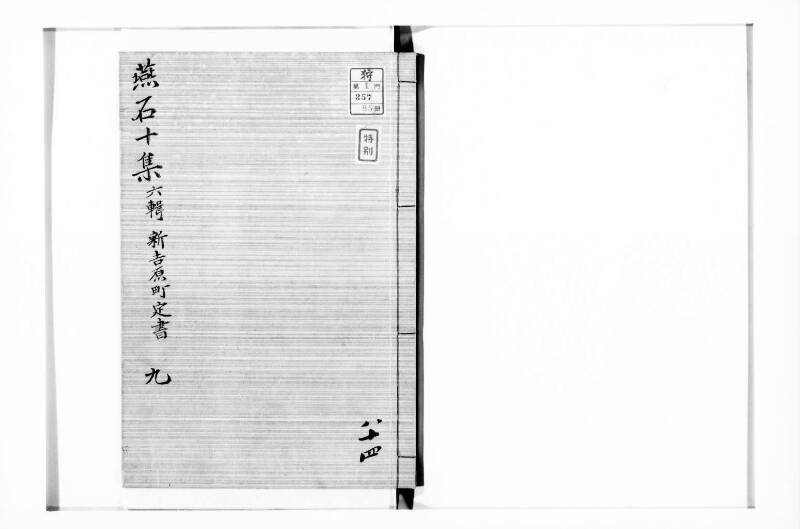 燕石十集 六輯 新吉原町定書 九
狩
第1門
257
85冊
特別
八十四